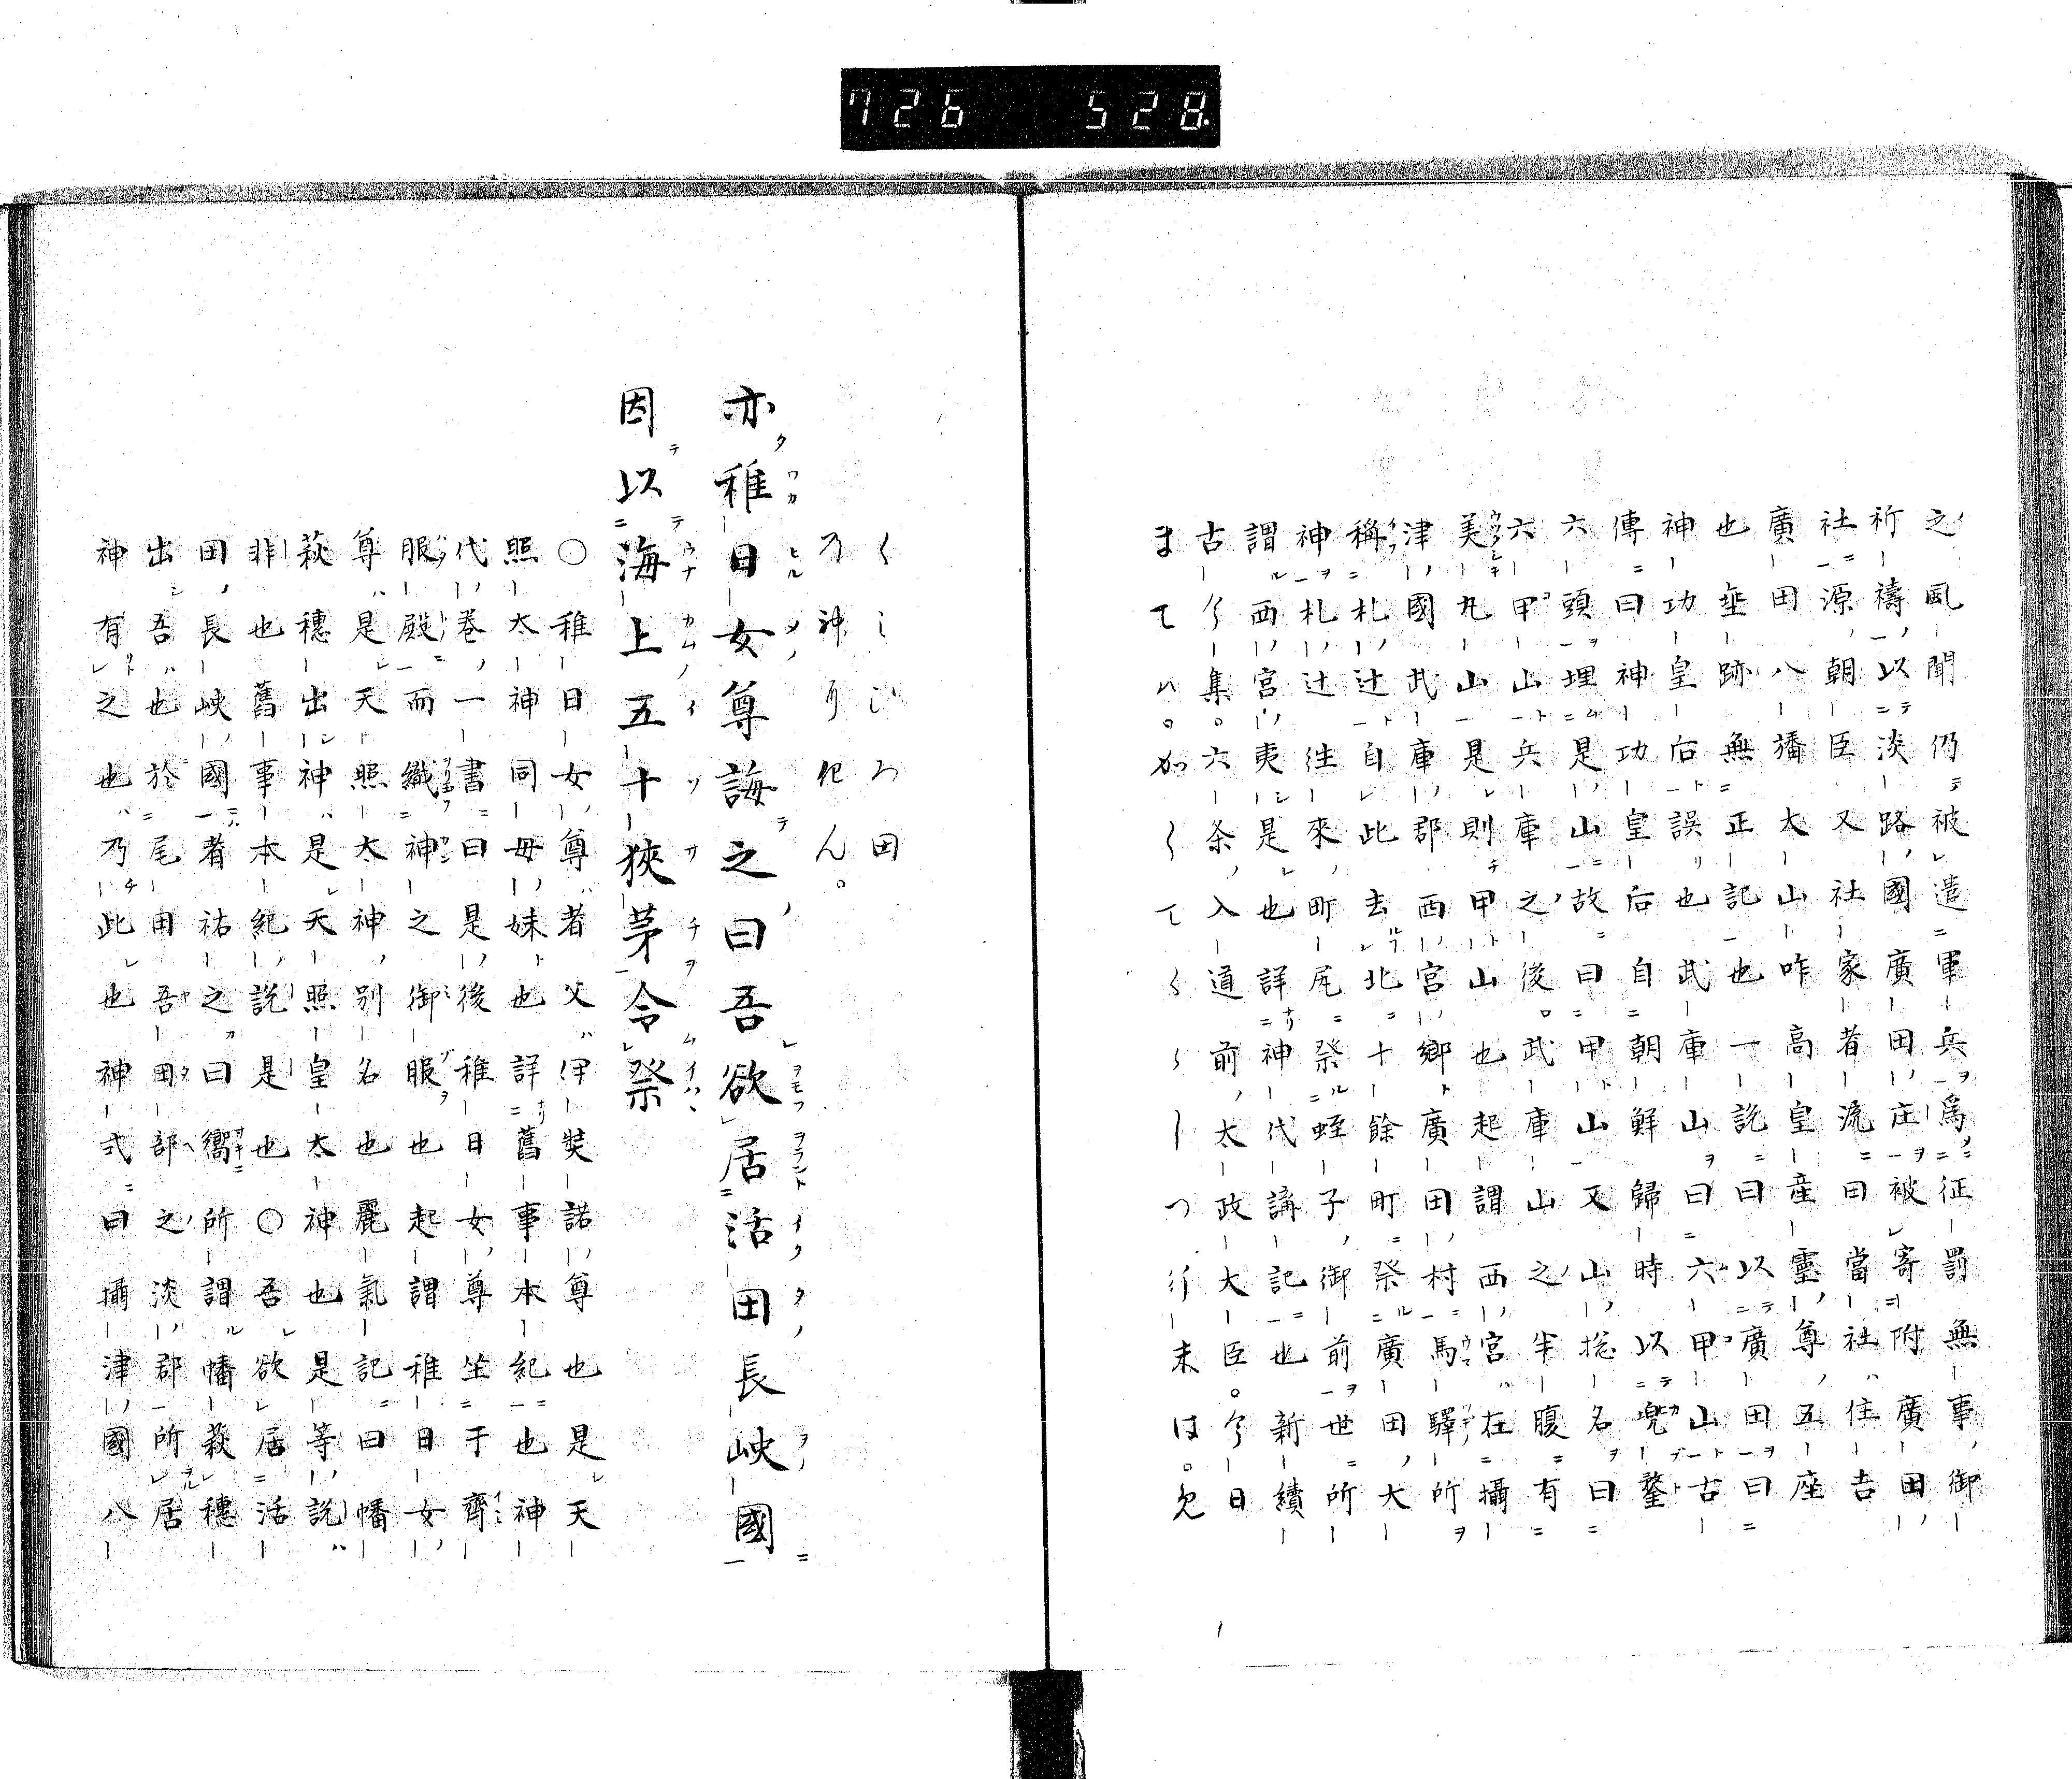 726 528
之風聞仍被遣軍兵爲征罰無事御
祈禱以淡路國廣田庄被寄附廣田
社源朝臣又社家者流曰當社住吉
廣田八旛大山咋高皇産靈尊五座
也埀跡無正記也一説曰以廣田曰
神功皇后誤也武庫山曰六甲山古
傳曰神功皇后自朝鮮歸時以兜鍪
六頭埋是山故曰甲山又山総名曰
六甲山兵庫之後武庫山之半腹有
美丸山是則甲山也起謂西宮在攝
津國武庫郡西宮鄉廣田村馬驛所
稱札辻自此去北十餘町祭廣田大
神札辻徃來町尻祭蛭子御前世所
謂西宮夷是也詳神代講記也新續
古今集六条入道前太政大臣。今日
まてハ。かく〱てく〱しつ行末は。免
くしひろ田
乃神のり祀ん。
亦稚日女尊誨之曰吾欲居活田長峽國
因以海上五十狹茅令祭
○稚日女尊者父伊弉諾尊也是天
照太神同母妹也詳舊事本紀也神
代卷一書曰是後稚日女尊坐于齊
服殿而織神之御服也起謂稚日女
尊是天照太神別名也麗氣記曰幡
萩穗出神是天照皇太神也是等説
非也舊事本紀説是也○吾欲居活
田長峽國者祐之曰嚮所謂幡萩穗
出吾也於尾田吾田部之淡郡所居
神有之也乃此也神式曰攝津國八